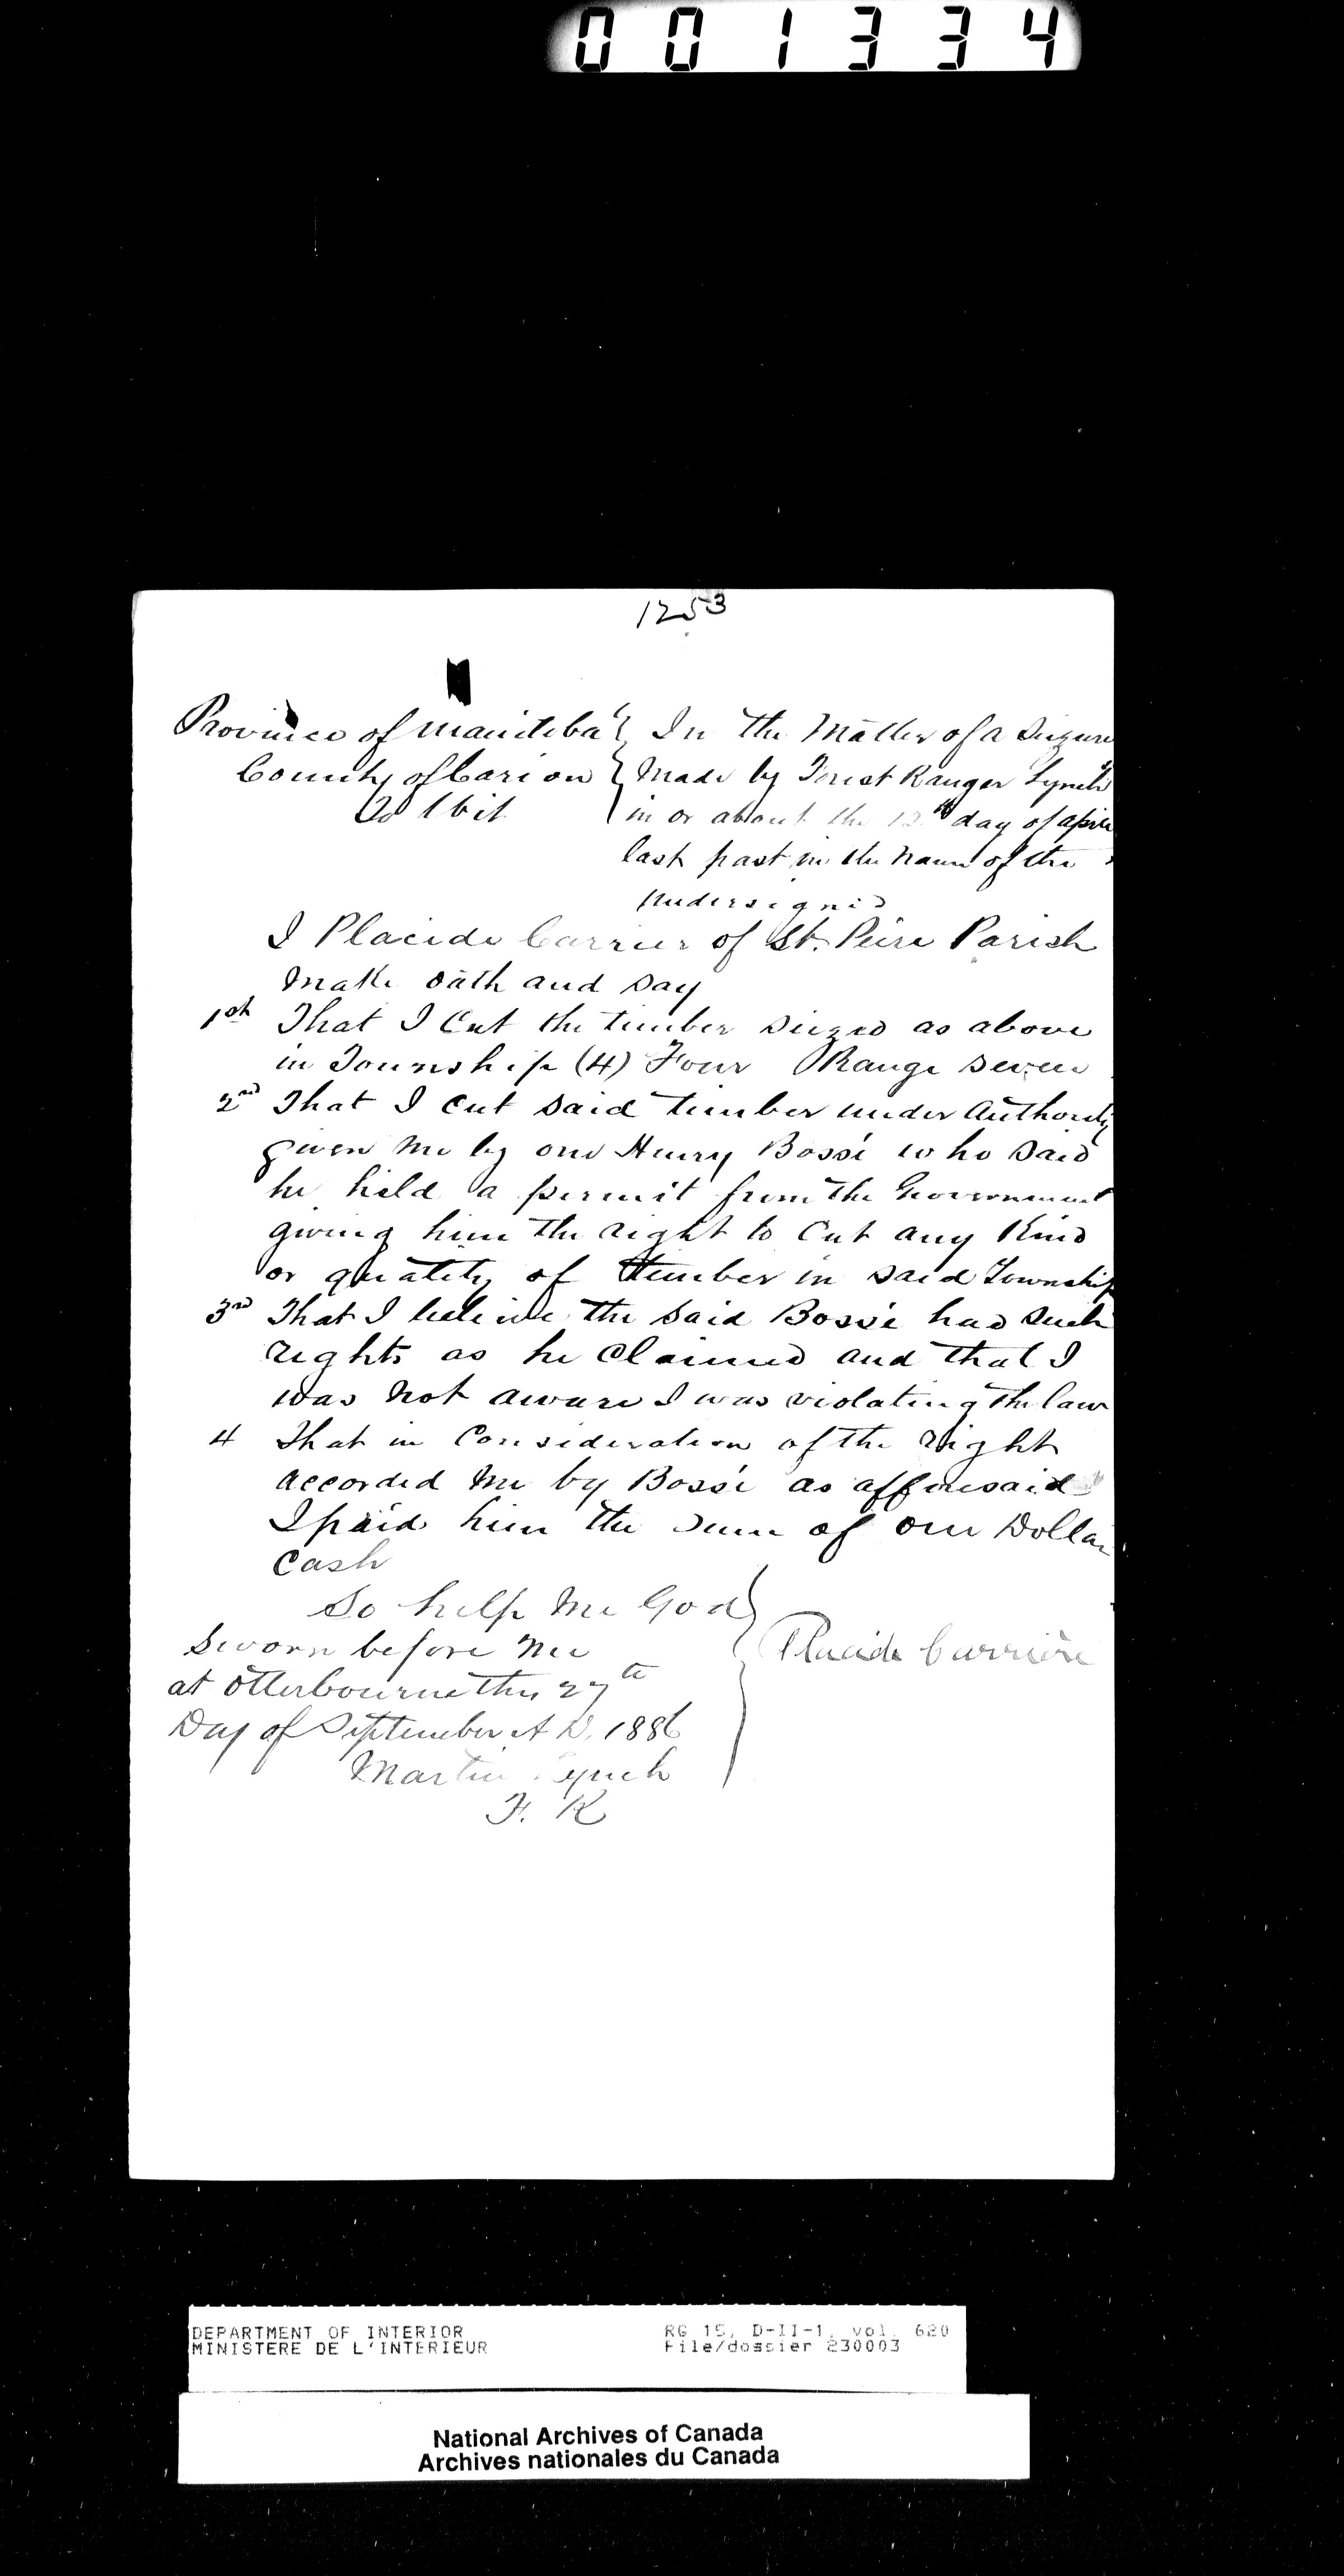 001334
1253
Province of Manitoba } In the Matter of a Siezure
County of Carion } Made by Forest Ranger Lynch
To Wit } in or about the 12th day of April
last past in the name of the
undersigned
I Placide Carrier of St. Peire Parish
Make oath and say
1st That I Cut the timber siezed as above
in Township (4) Four Range seven
2nd That I cut said timber under Authority
given me by one Henry Bossé who said
he held a permit from the Government
giving him the right to Cut any Kind
or quatity of timber in said Township
3rd That I beleive the said Bossé had such
rights as he Claimed and that I
was not aware I was violating the law
4 That in Consideration of the right
accorded me by Bossé as afforesaid
I paid him the sum of one Dollar
Cash
So help me God
Sworn before me } Placide Carrière
at Otterbourne this 27th
Day of September A D. 1886
Martin Lynch
F. R
DEPARTMENT OF INTERIOR RG 15, D-II-1, vol. 620
MINISTERE DE L'INTERIEUR File/dossier 230003
National Archives of Canada
Archives nationales du Canada